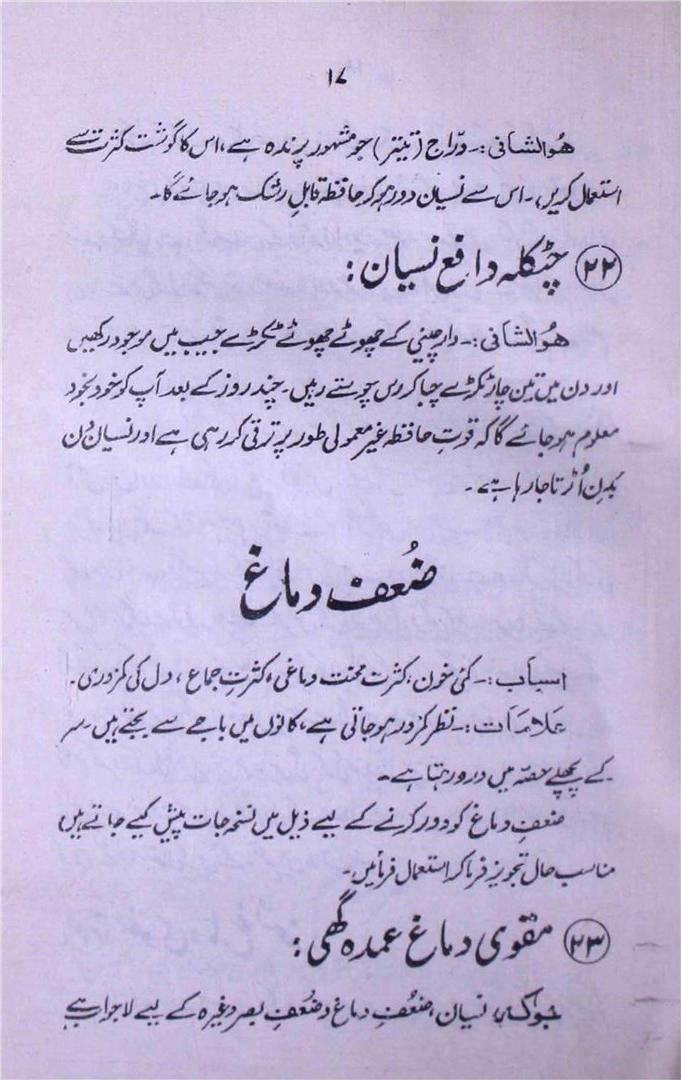 ۱۷
ھُوالشافی:۔ درّاج (تیتر) جو مشہور پرندہ ہے، اس کا گوشت کثرت سے
استعمال کریں،۔ اس سے نسیان دور ہو کر حافظہ قابلِ رشک ہو جائے گا۔
۲۲ چٹکلہ دافع نسیان:
ھُوالشافی:۔ دارچینی کے چھوٹے چھوٹے ٹکڑے جیب میں موجود رکھیں
اور دن میں تین چار ٹکڑے چبا کر رس چوستے رہیں۔ چند روز کے بعد آپ کو خود بخود
معلوم ہو جائے گا کہ قوتِ حافظہ غیر معمولی طور پر ترقی کر رہی ہے اور نسیان دن
بدن اُڑتا جا رہا ہے۔
ضُعف دماغ
اسباب:۔ کمی خون، کثرت محنت دماغی، کثرتِ جماع، دل کی کمزوری۔
علامات:۔ نظر کمزور ہو جاتی ہے، کانوں میں باجے سے بجتے ہیں۔ سر
کے پچھلے حصہ میں درد رہتا ہے۔
ضعفِ دماغ کو دور کرنے کے لیے ذیل میں نسخہ جات پیش کیے جاتے ہیں
مناسب حال تجویز فرما کر استعمال فرمائیں۔
۲۳ مقوی دماغ عمدہ گھی:
جو کہ نسیان، ضعفِ دماغ و ضعفِ بصر وغیرہ کے لیے لاجواب ہے